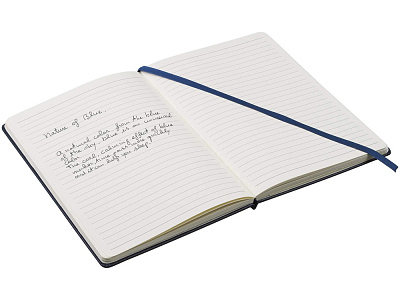 Nature of Blue.
A natural color from the blue
of the sky. Blue is an universal
color.
The cool, calming effect of blue
makes time pass more quickly
and it can help you sleep!